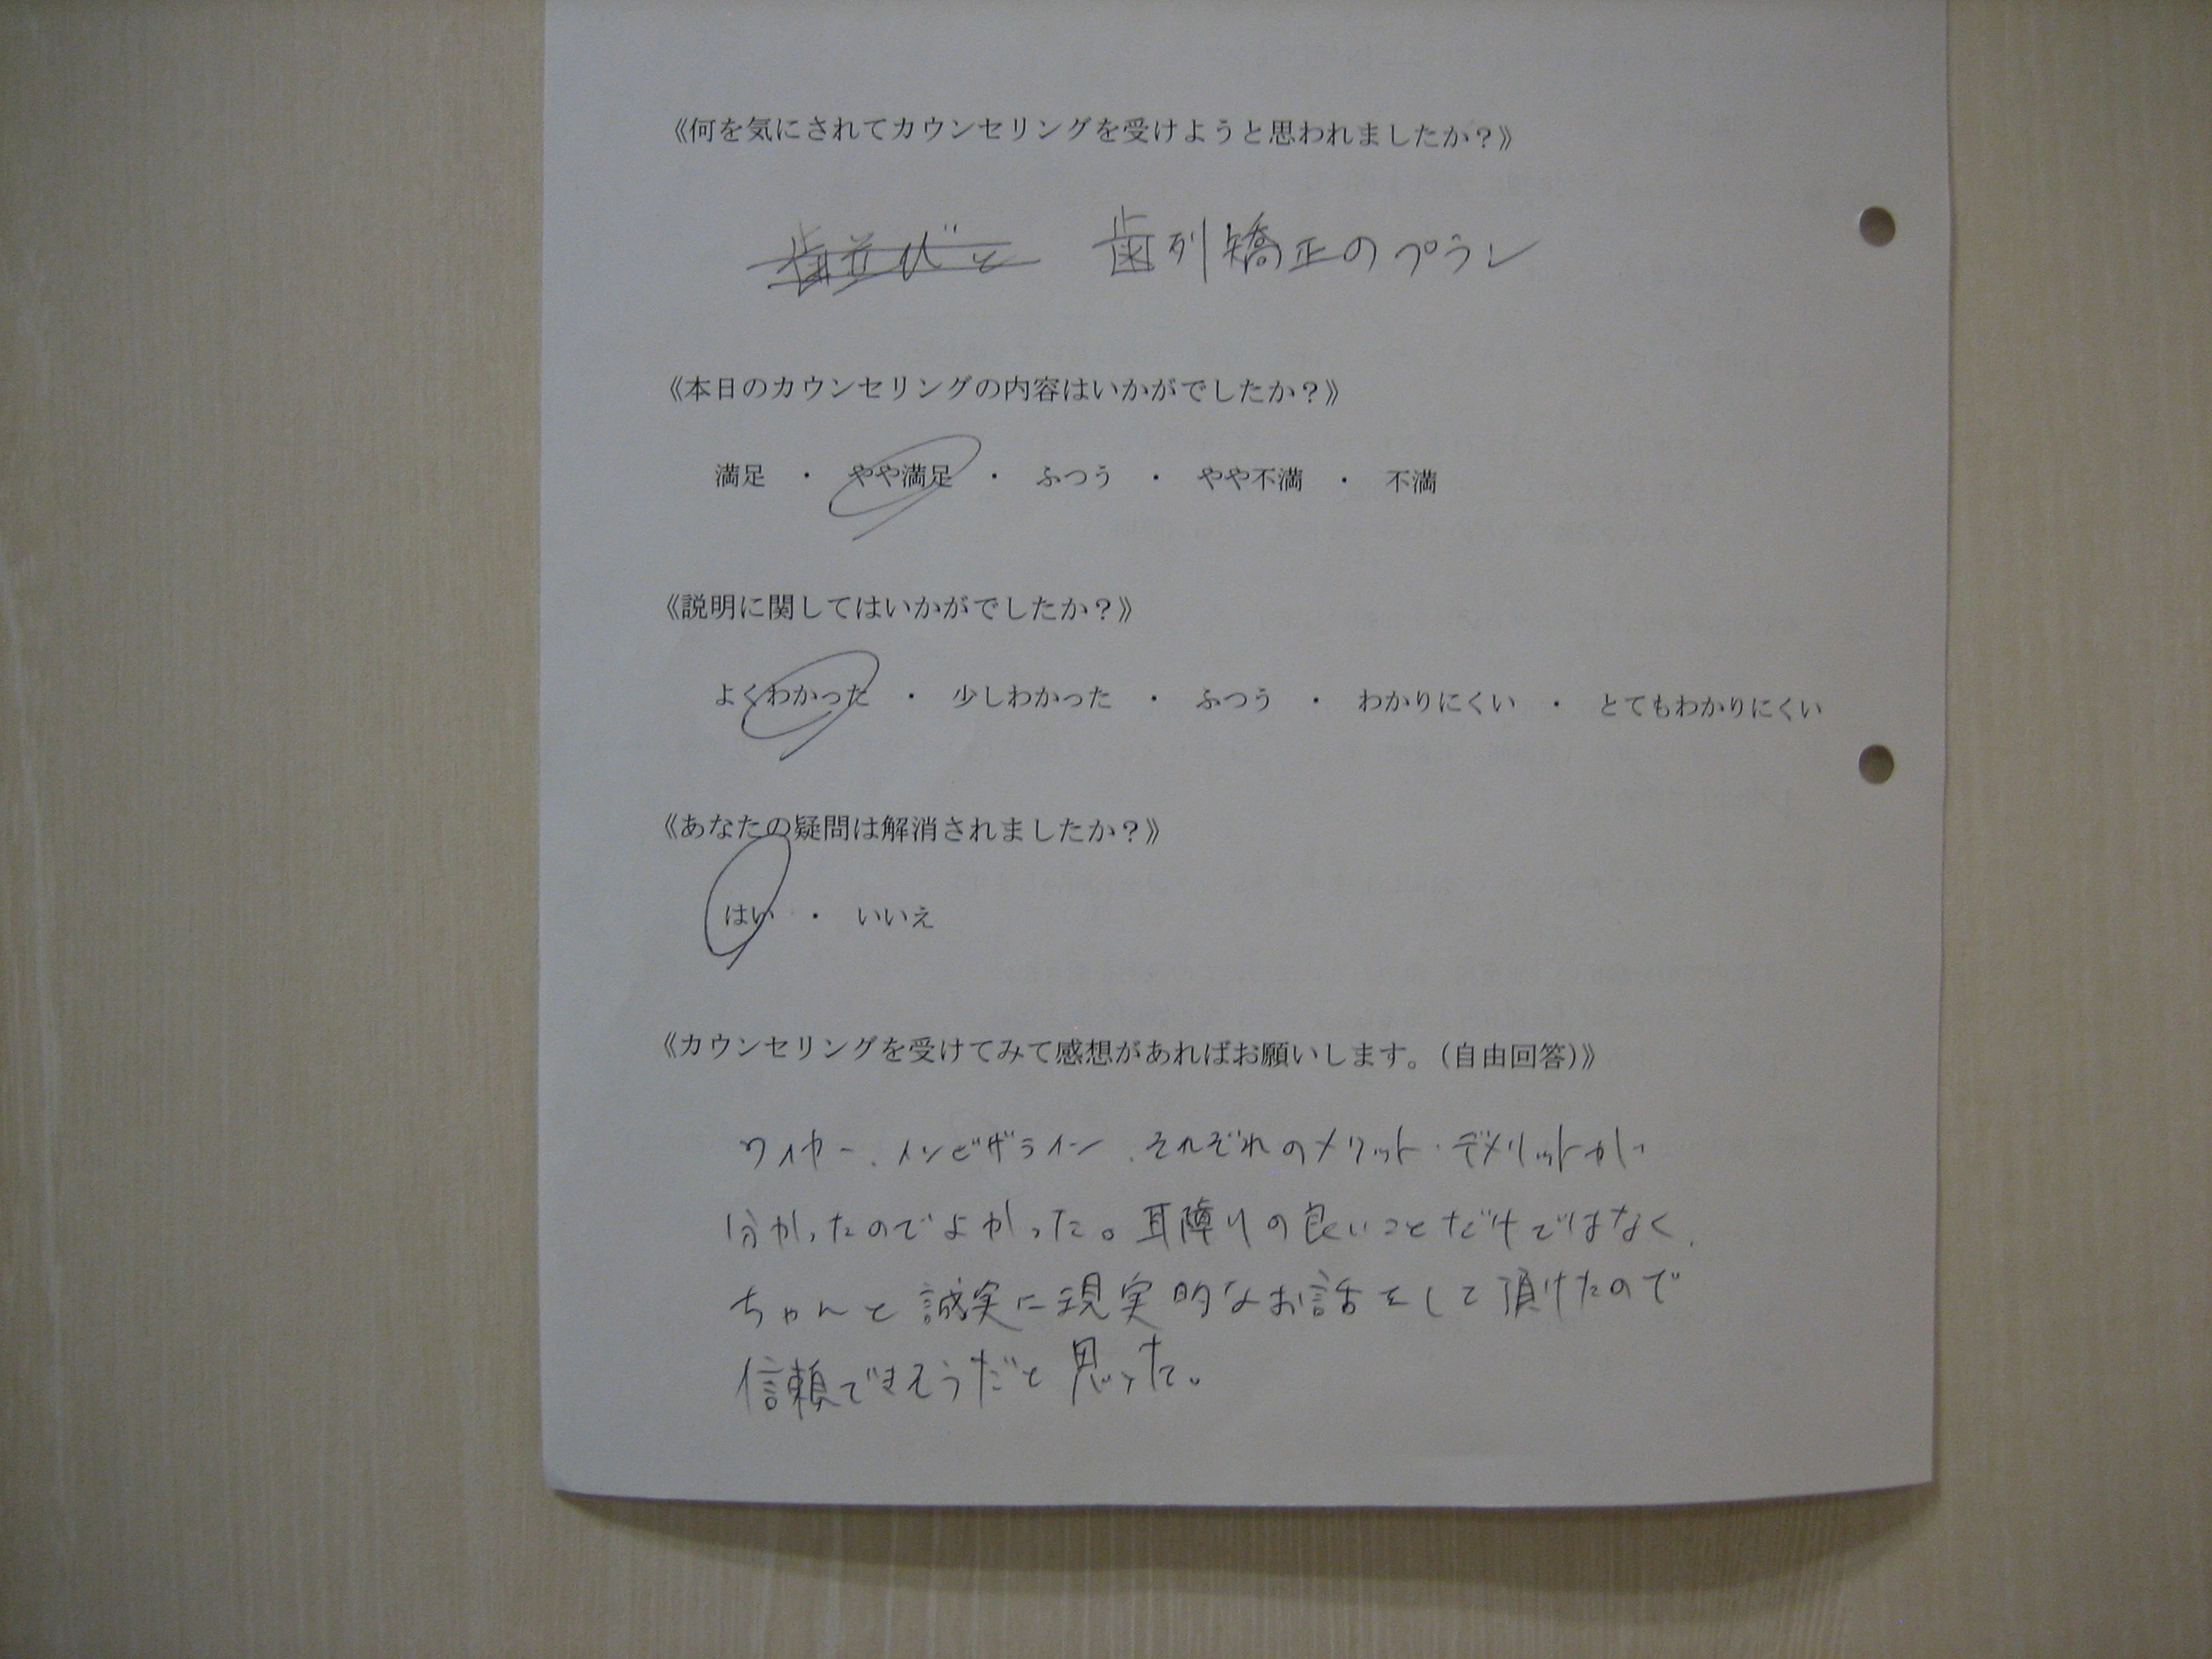 《何を気にされてカウンセリングを受けようと思われましたか？》
歯並びと 歯列矯正のプラン
《本日のカウンセリングの内容はいかがでしたか？》
満足 ・ やや満足 ・ ふつう ・ やや不満 ・ 不満
《説明に関してはいかがでしたか？》
よくわかった ・ 少しわかった ・ ふつう ・ わかりにくい ・ とてもわかりにくい
《あなたの疑問は解消されましたか？》
はい ・ いいえ
《カウンセリングを受けてみて感想があればお願いします。（自由回答）》
ワイヤー、インビザライン、それぞれのメリット・デメリットが
分かったのでよかった。耳障りの良いことだけではなく、
ちゃんと誠実に現実的なお話をして頂けたので
信頼できそうだと思った。